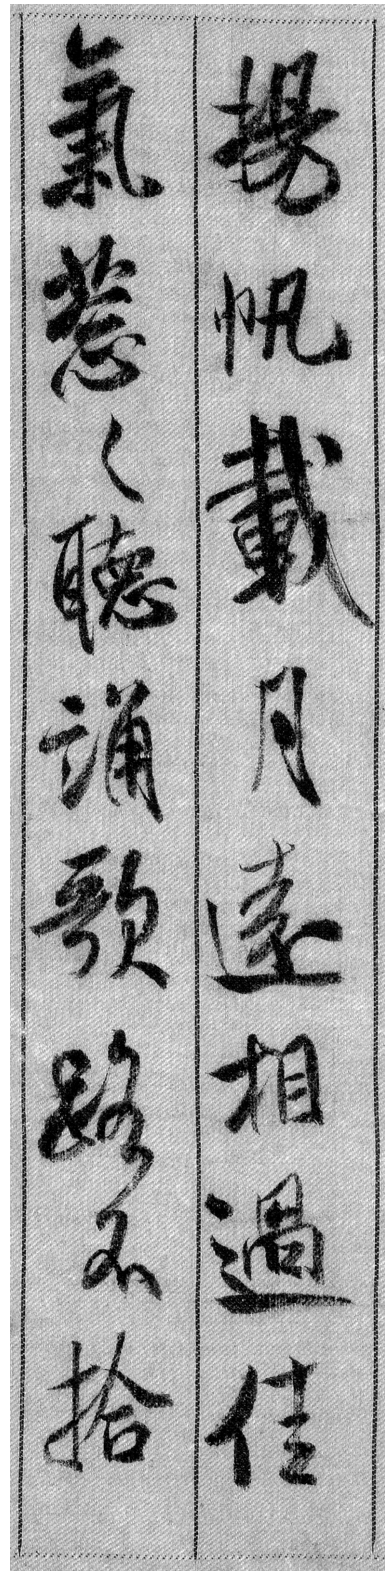 揚帆載月遠相過佳
氣葱〻聽誦歌路不拾